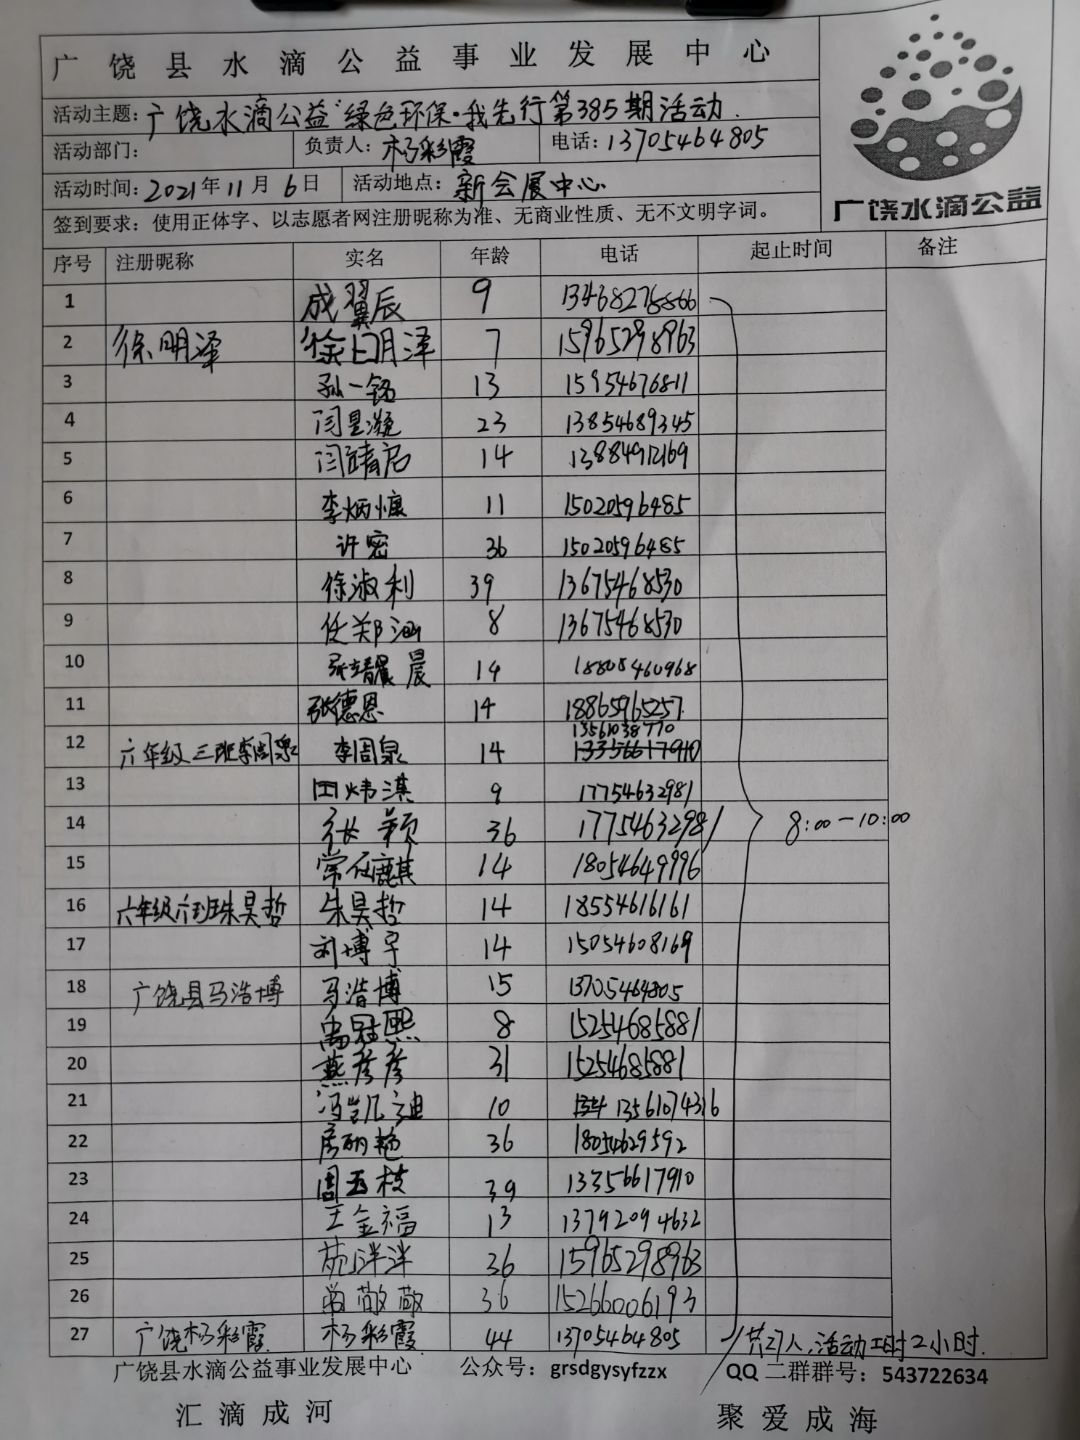 广饶县水滴公益事业发展中心
活动主题:广饶水滴公益"绿色环保·我先行第385期活动.
活动部门: 负责人:杨彩霞 电话:13705464805
活动时间:2021年11月6日 活动地点:新会展中心
签到要求:使用正体字、以志愿者网注册昵称为准、无商业性质、无不文明字词。
广饶水滴公益
序号 注册昵称 实名 年龄 电话 起止时间 备注
1 成翼辰 9 13468275866
2 徐明泽 徐明泽 7 15965298963
3 孙一铭 13 15954676811
4 闫昱 23 13854689345
5 闫 14 13884912169
6 李炳慷 11 15020596485
7 许密 36 15020596485
8 徐淑利 39 13675468530
9 任郑涵 8 13675468530
10 张靖晨 晨 14 18808460968
11 张德恩 14 18865965257
12 六年级三班李周泉 李周泉 14 13561038770
13356617910
13 田炜淇 9 17754632981
14 张颖 36 17754632981 8:00—10:00
15 常 麒 14 18054649996
16 六年级六班朱昊哲 朱昊哲 14 18554616161
17 刘博宇 14 15054608169
18 广饶县马浩博 马浩博 15 13705464805
19 冠熙 8 15254685881
20 燕彦彦 31 15254685881
21 冯凯迪 10 13561074316
22 艳 36 18054629592
23 周玉枝 39 13356617910
24 王金福 13 13792094632
25 苑洋洋 36 15965298963
26 敬敬 36 15266006193
27 广饶杨彩霞 杨彩霞 44 13705464805 共27人,活动工时2小时.
广饶县水滴公益事业发展中心 公众号:grsdgysyfzzx QQ二群群号:543722634
汇滴成河 聚爱成海